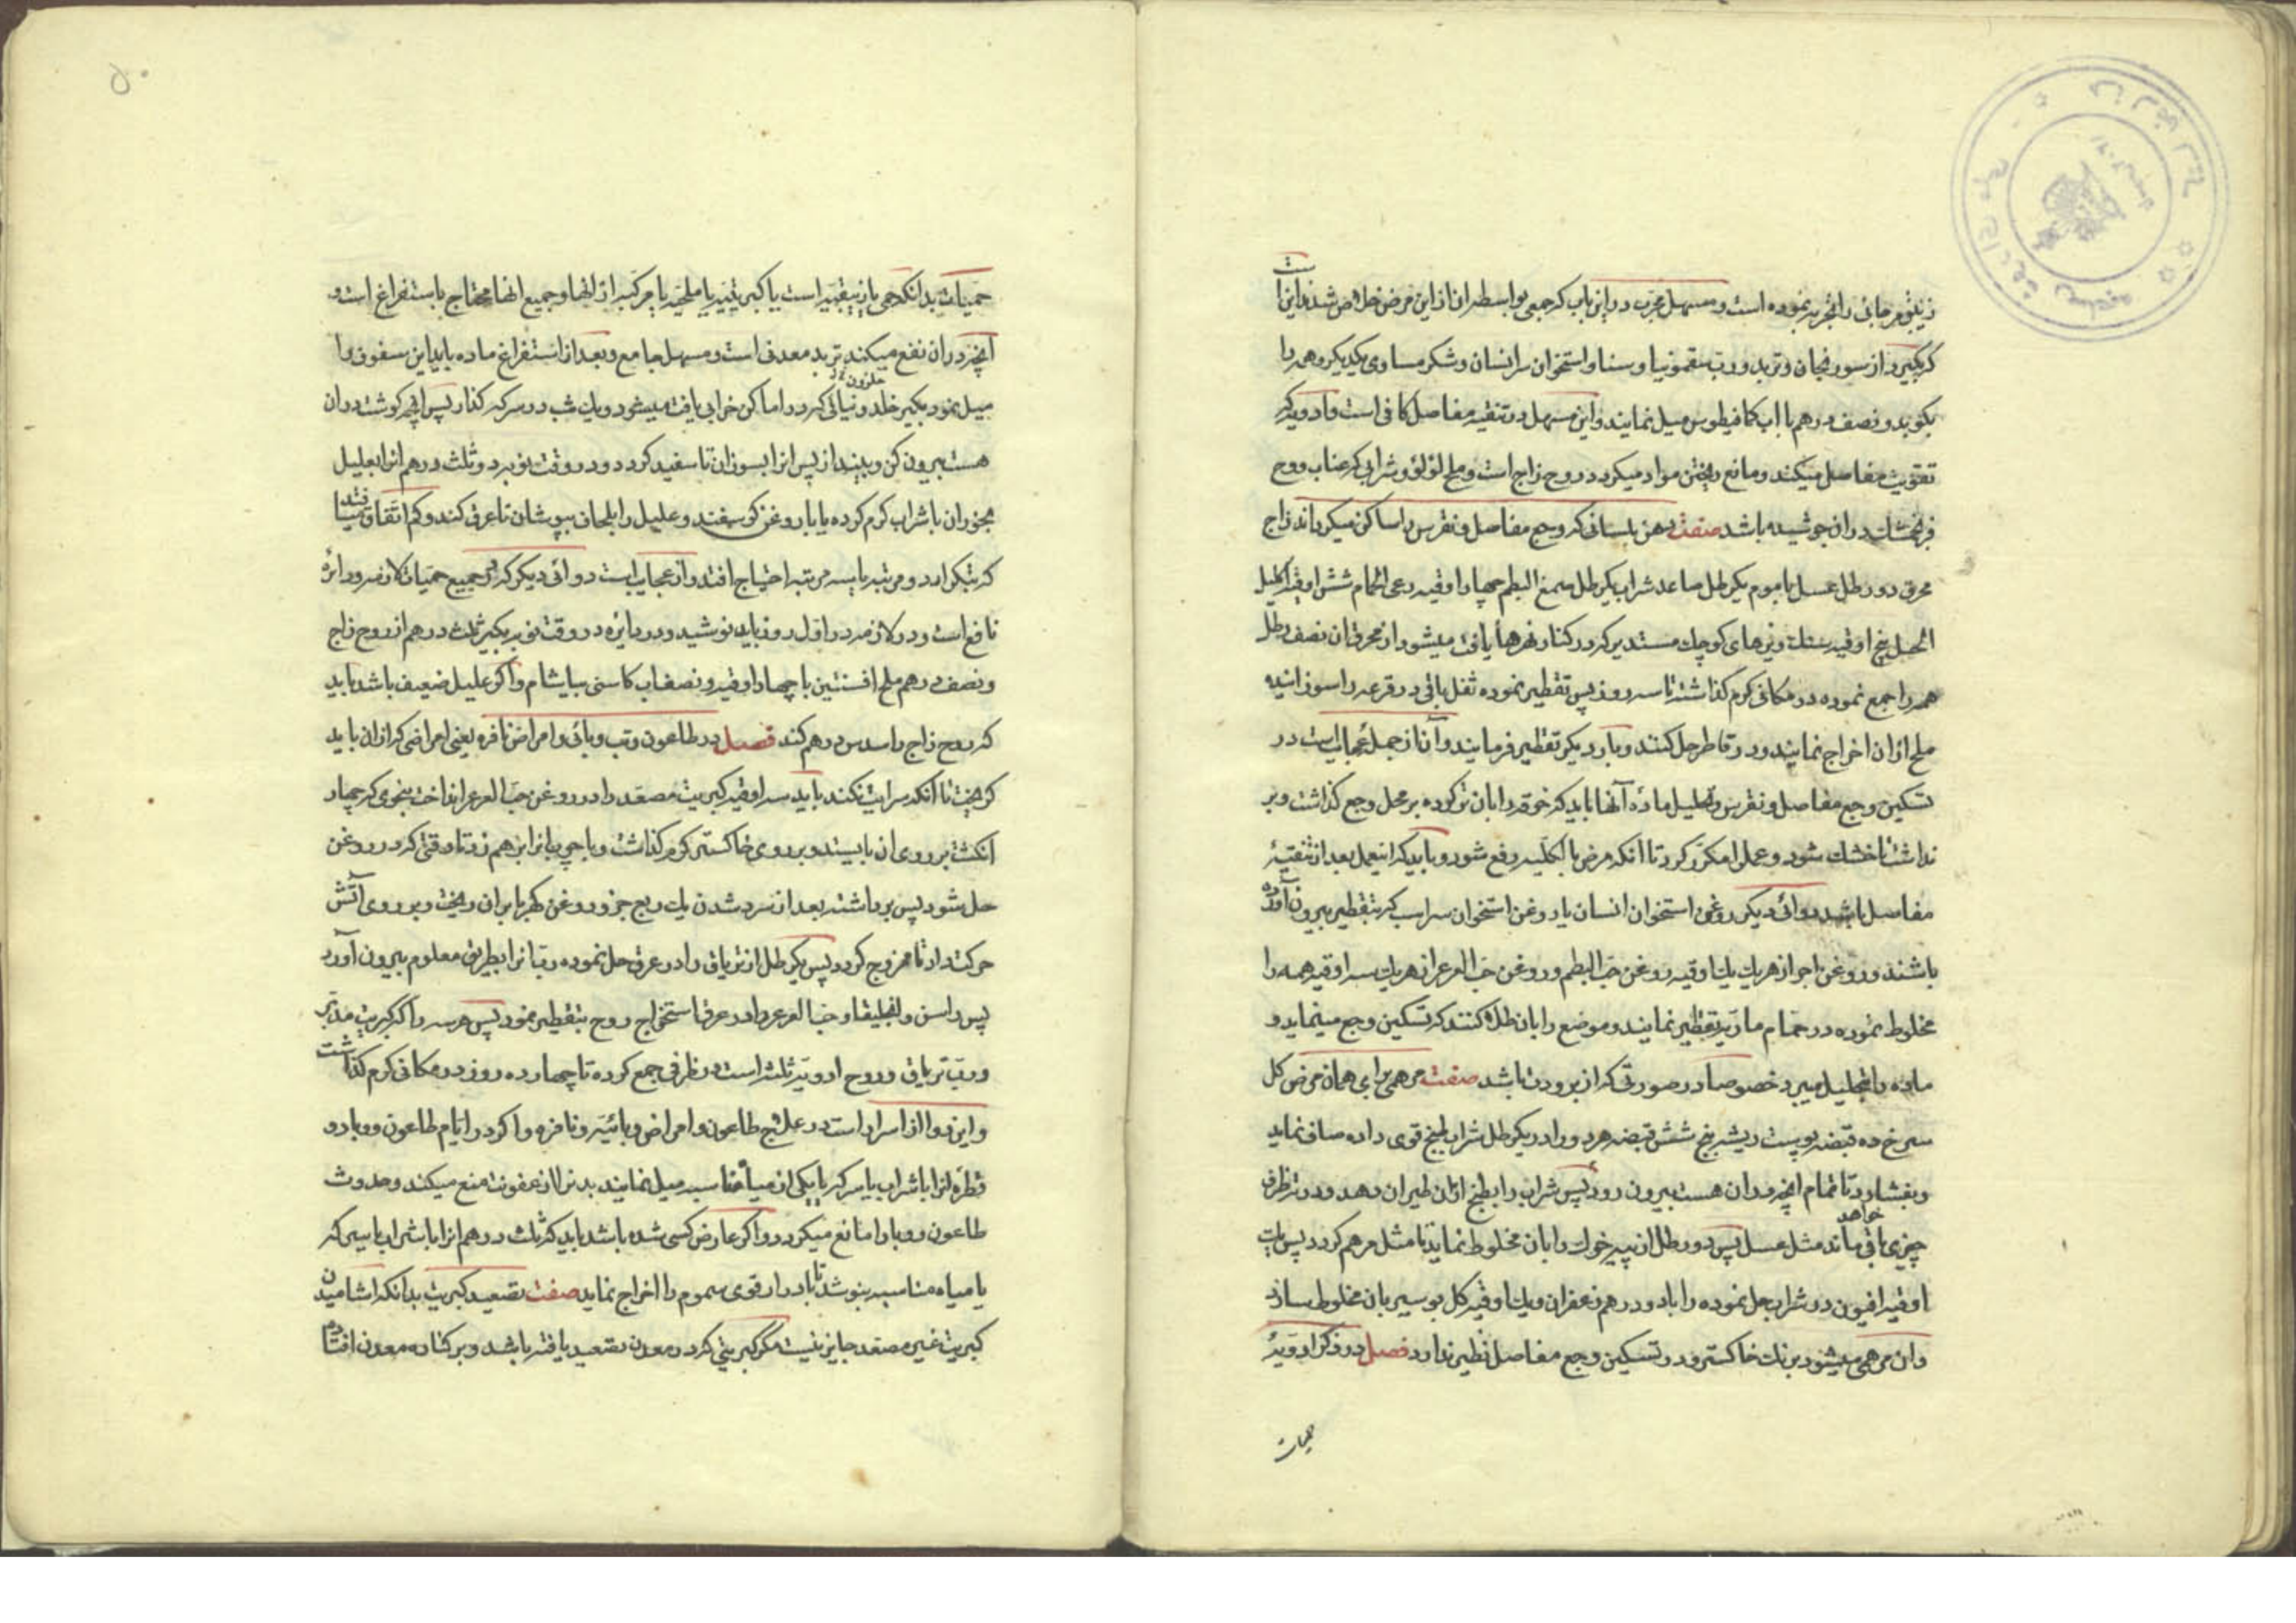 زیبقی مرجانی را تجربه نموده است و مسهل مجرب در این باب که جمعی بواسطه ان از این مرض خلاص شدند این است
که بگیرد از سورنجان و تربد و رب سقمونیا و سنا و استخوان سر انسان و شکر مساوی یکدیگر و همه را
بکوبد و نصف درهم با اب کمافیطوس میل نمایند و این مسهل در تنقیه مفاصل کافی است و ادویه که
تقویت مفاصل میکند و مانع ریختن مواد میکردد روح زاج است و ملح لؤلؤ و شرابی که عناب و وج
در ان جوشیده باشد صفت دهن بلسانی که وجع مفاصل و نقرس را ساکن میکرداند زاج
محرق دو رطل عسل با موم یکرطل صاعد شراب یکرطل صمغ البطم چهار اوقیه رعی الحمام شش اوقیه اکلیل
الجبل پنج اوقیه سنک ریزهای کوچک مستدیر که در کنار نهرها یافت میشود از محرق ان نصف رطل
همه را جمع نموده در مکانی کرم کذاشته تا سه روز پس تقطیر نموده ثفل باقی در قرعه را سوزانیده
ملح از ان اخراج نمایند و در قاطر حل کنند و بار دیگر تقطیر فرمایند و آن از جمله عجایب است در
تسکین وجع مفاصل و نقرس و تحلیل ماده آنها باید که خرقه را بان تر کرده بر محل وجع کذاشت و بر
نداشت تا خشک شود و عمل را مکرر کرد تا آنکه مرض بالکلیه رفع شود و باید که اینعمل بعد از تنقیهٔ
مفاصل باشد دوائی دیکر روغن استخوان انسان یا روغن استخوان سر اسب که بتقطیر بیرون آورده
باشند و روغن اجر از هر یک یک اوقیه روغن حب البطم و روغن حب العرعر از هر یک سه اوقیه همه را
مخلوط نموده در حمام ماریه تقطیر نمایند و موضع را بان طلا کنند که تسکین وجع مینماید و
ماده را بتحلیل میبرد خصوصا در صورتی که از برودت باشد صفت مرهمی برای همان مرض کل
سرخ ده قبضه پوست ریشه بنج شش قبضه هر دو را در یکرطل شراب طبخ قوی داده صاف نماید
و بفشارد تا تمام انچه در ان هست بیرون رود پس شراب را بطبخ از ان طیران دهد و در ته ظرف
چیزی باقی خواهد ماند مثل عسل پس دو رطل از پیه خوک را بان مخلوط نماید تا مثل مرهم کردد پس یک
اوقیه افیون در شراب حل نموده را با دو درهم زعفران و یک اوقیه کل بوسیر بان مخلوط سازد
وان مرهمی میشود برنک خاکستر و در تسکین وجع مفاصل نظیر ندارد فصل در ذکر ادویهٔ
حمیات
۵۰
حمیات بدانکه حمی یا زیبقیه است یا کبریتیه یا ملحیه یا مرکبه از انها و جمیع انها محتاج باستفراغ است و
انچه در ان نفع میکند تربد معدنی است و مسهل جامع و بعد از استفراغ ماده باید این سفوف را
میل نمود بکیر حلزون که در اماکن خرابی یافت میشود و یک شب در سرکه کذار پس انچه کوشت در ان
هست بیرون کن و بینداز پس انرا بسوزان تا سفید کردد و در وقت نوبه دو ثلث درهم انرا بعلیل
بخوران با شراب کرم کرده یا با روغن کوسفند و علیل را بلحاف بپوشان تا عرق کند و کم اتفاق میافتد
که بتکرار دو مرتبه یا سه مرتبه احتیاج افتد و از عجایب است دوائی دیکر که در جمیع حمیات لازمه و دائره
نافع است و در لازمه در اول روز باید نوشید و در دائره در وقت نوبه بکیر ثلث درهم از روح زاج
و نصف درهم ملح افسنتین با چهار اوقیه و نصف اب کاسنی بیاشام و اکر علیل ضعیف باشد باید
که روح زاج را سدس درهم کند فصل در طاعون و تب وبائی و امراض نافره یعنی امراضی که از ان باید
کریخت تا آنکه سرایت نکند باید سه اوقیه کبریت مصعد را در روغن حب العرعر انداخت بنحوی که چهار
انکشت بر روی ان بایستد و بر روی خاکستر کرم کذاشت و با چوب انرا برهم زد تا وقتی که در روغن
حل شود پس برداشته بعد از سرد شدن یک ربع جزو روغن کهربا بران ریخت و بر روی آتش
حرکت داد تا ممزوج کردد پس یکرطل از تریاق را در عرق حل نموده رب انرا بطریق معلوم بیرون آورد
پس راسن و انجلیقا و حب العرعر را در عرق استخراج روح بتقطیر نمود پس هر سه را که کبریت مدبر
و رب تریاق و روح ادویه ثلثه است در ظرفی جمع کرده تا چهارده روز در مکانی کرم کذاشت
و این دوا از اسرار است در علاج طاعون و امراض وبائیه و نافره و اکر در ایام طاعون و وبا دو
قطره انرا با شراب یا سرکه یا یکی از میاه مناسبه میل نمایند بدن را از عفونت منع میکند و حدوث
طاعون و وبا را مانع میکردد و اکر عارض کسی شده باشد باید که ثلث درهم انرا با شراب یا سرکه
یا میاه مناسبه بنوشد تا بادرار قوی سموم را اخراج نماید صفت تصعید کبریت بدانکه اشامیدن
کبریت غیر مصعد جایز نیست مکر کبریتی که در معدن تصعید یافته باشد و بر کناره معدن افتاده